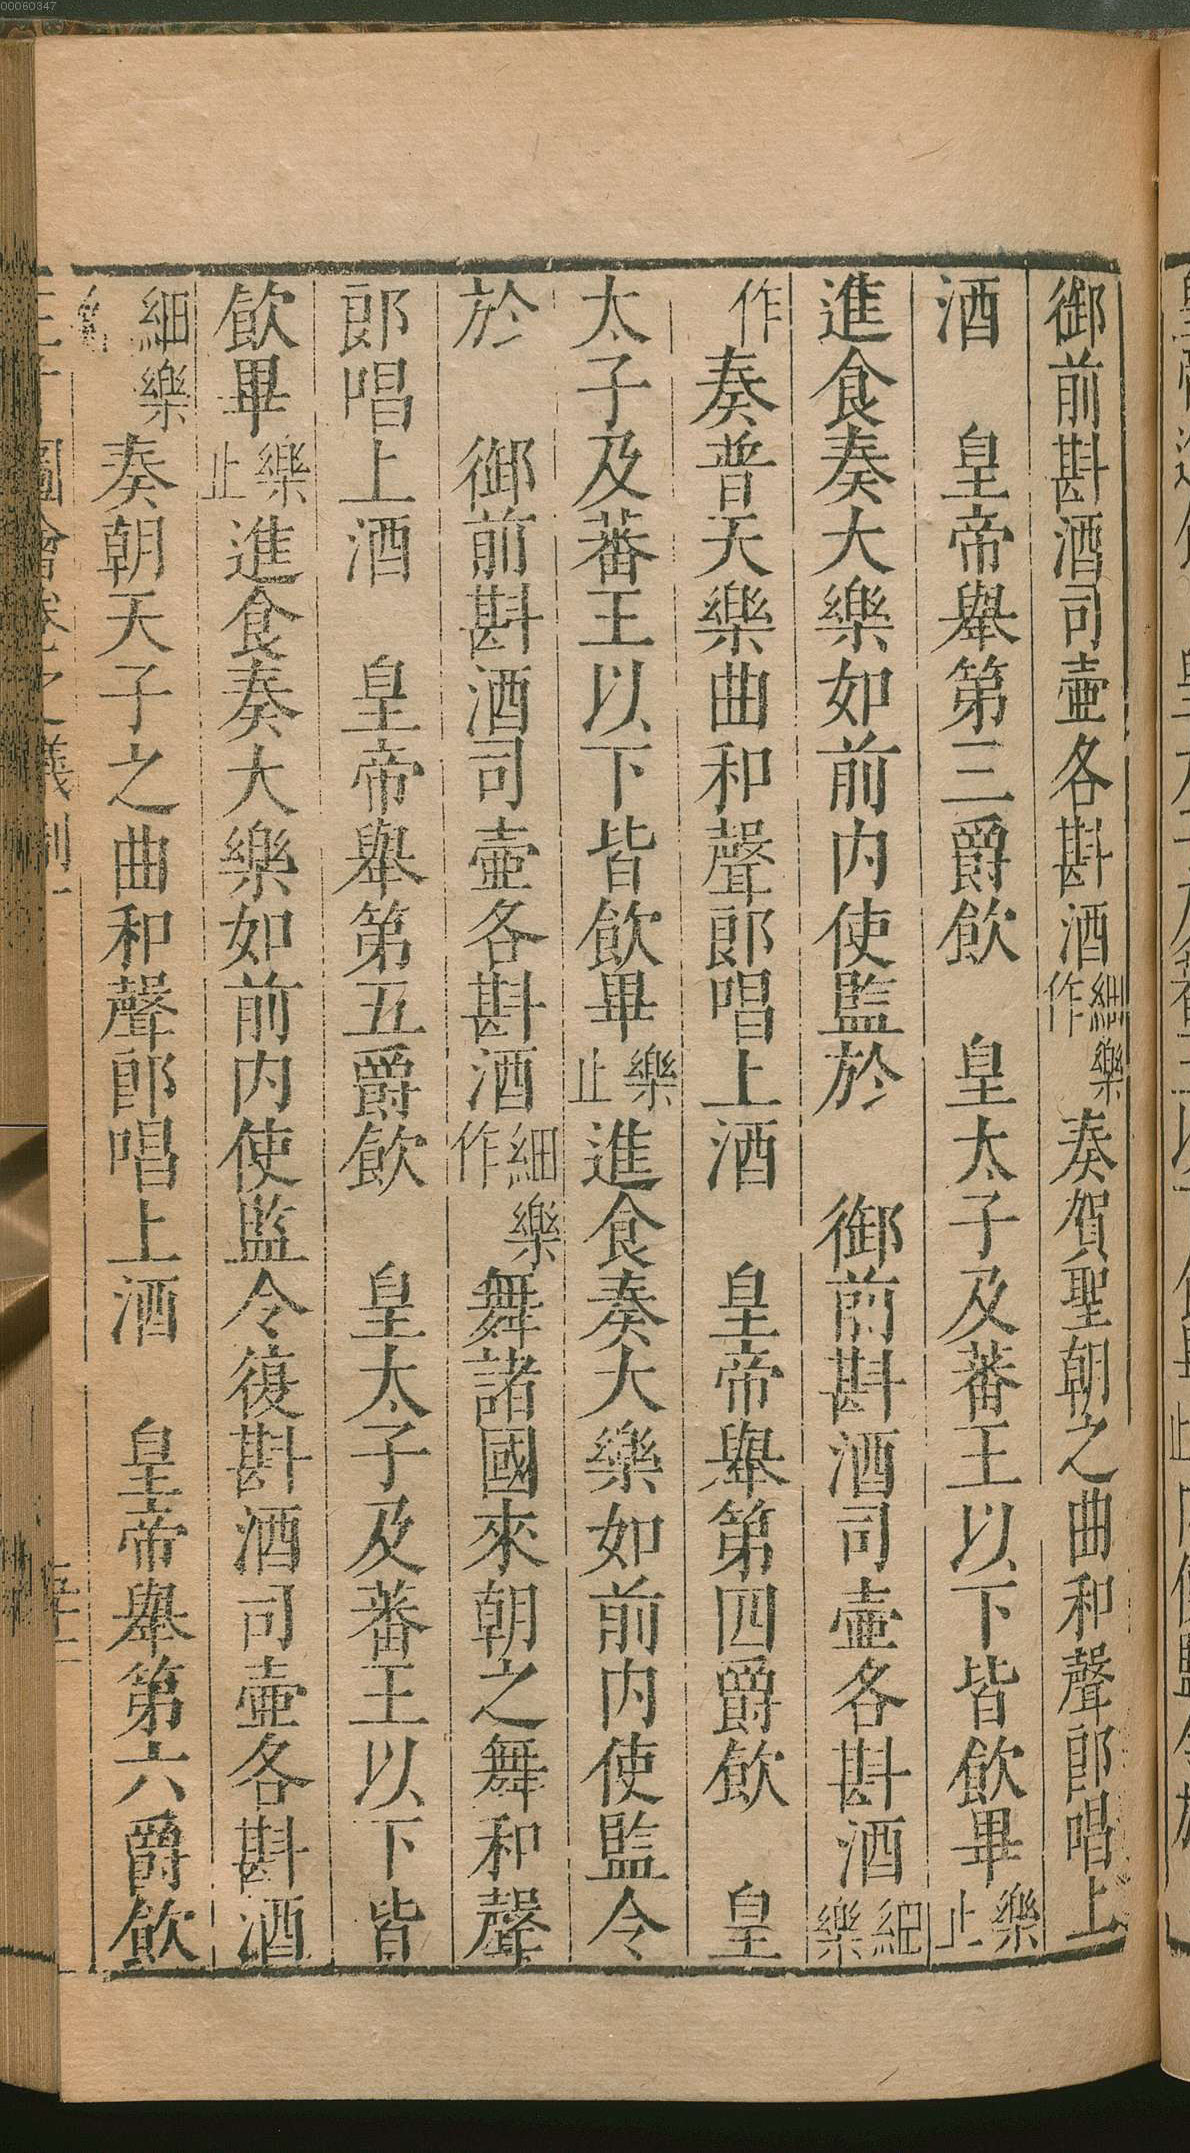 00060347
御前斟酒司壺各斟酒細樂作奏賀聖朝之曲和聲郎唱上
酒　皇帝舉第三爵飲　皇太子及蕃王以下皆飲畢樂止
進食奏大樂如前内使監於　御前斟酒司壺各斟酒細樂
作奏普天樂曲和聲郎唱上酒　皇帝舉第四爵飲　皇
太子及蕃王以下皆飲畢樂止進食奏大樂如前内使監令
於　御前斟酒司壺各斟酒細樂作舞諸國來朝之舞和聲
郎唱上酒　皇帝舉第五爵飲　皇太子及蕃王以下皆
飲畢樂止進食奏大樂如前内使監令復斟酒司壺各斟酒
細樂奏朝天子之曲和聲郎唱上酒　皇帝舉第六爵飲
圖會卷之儀制一